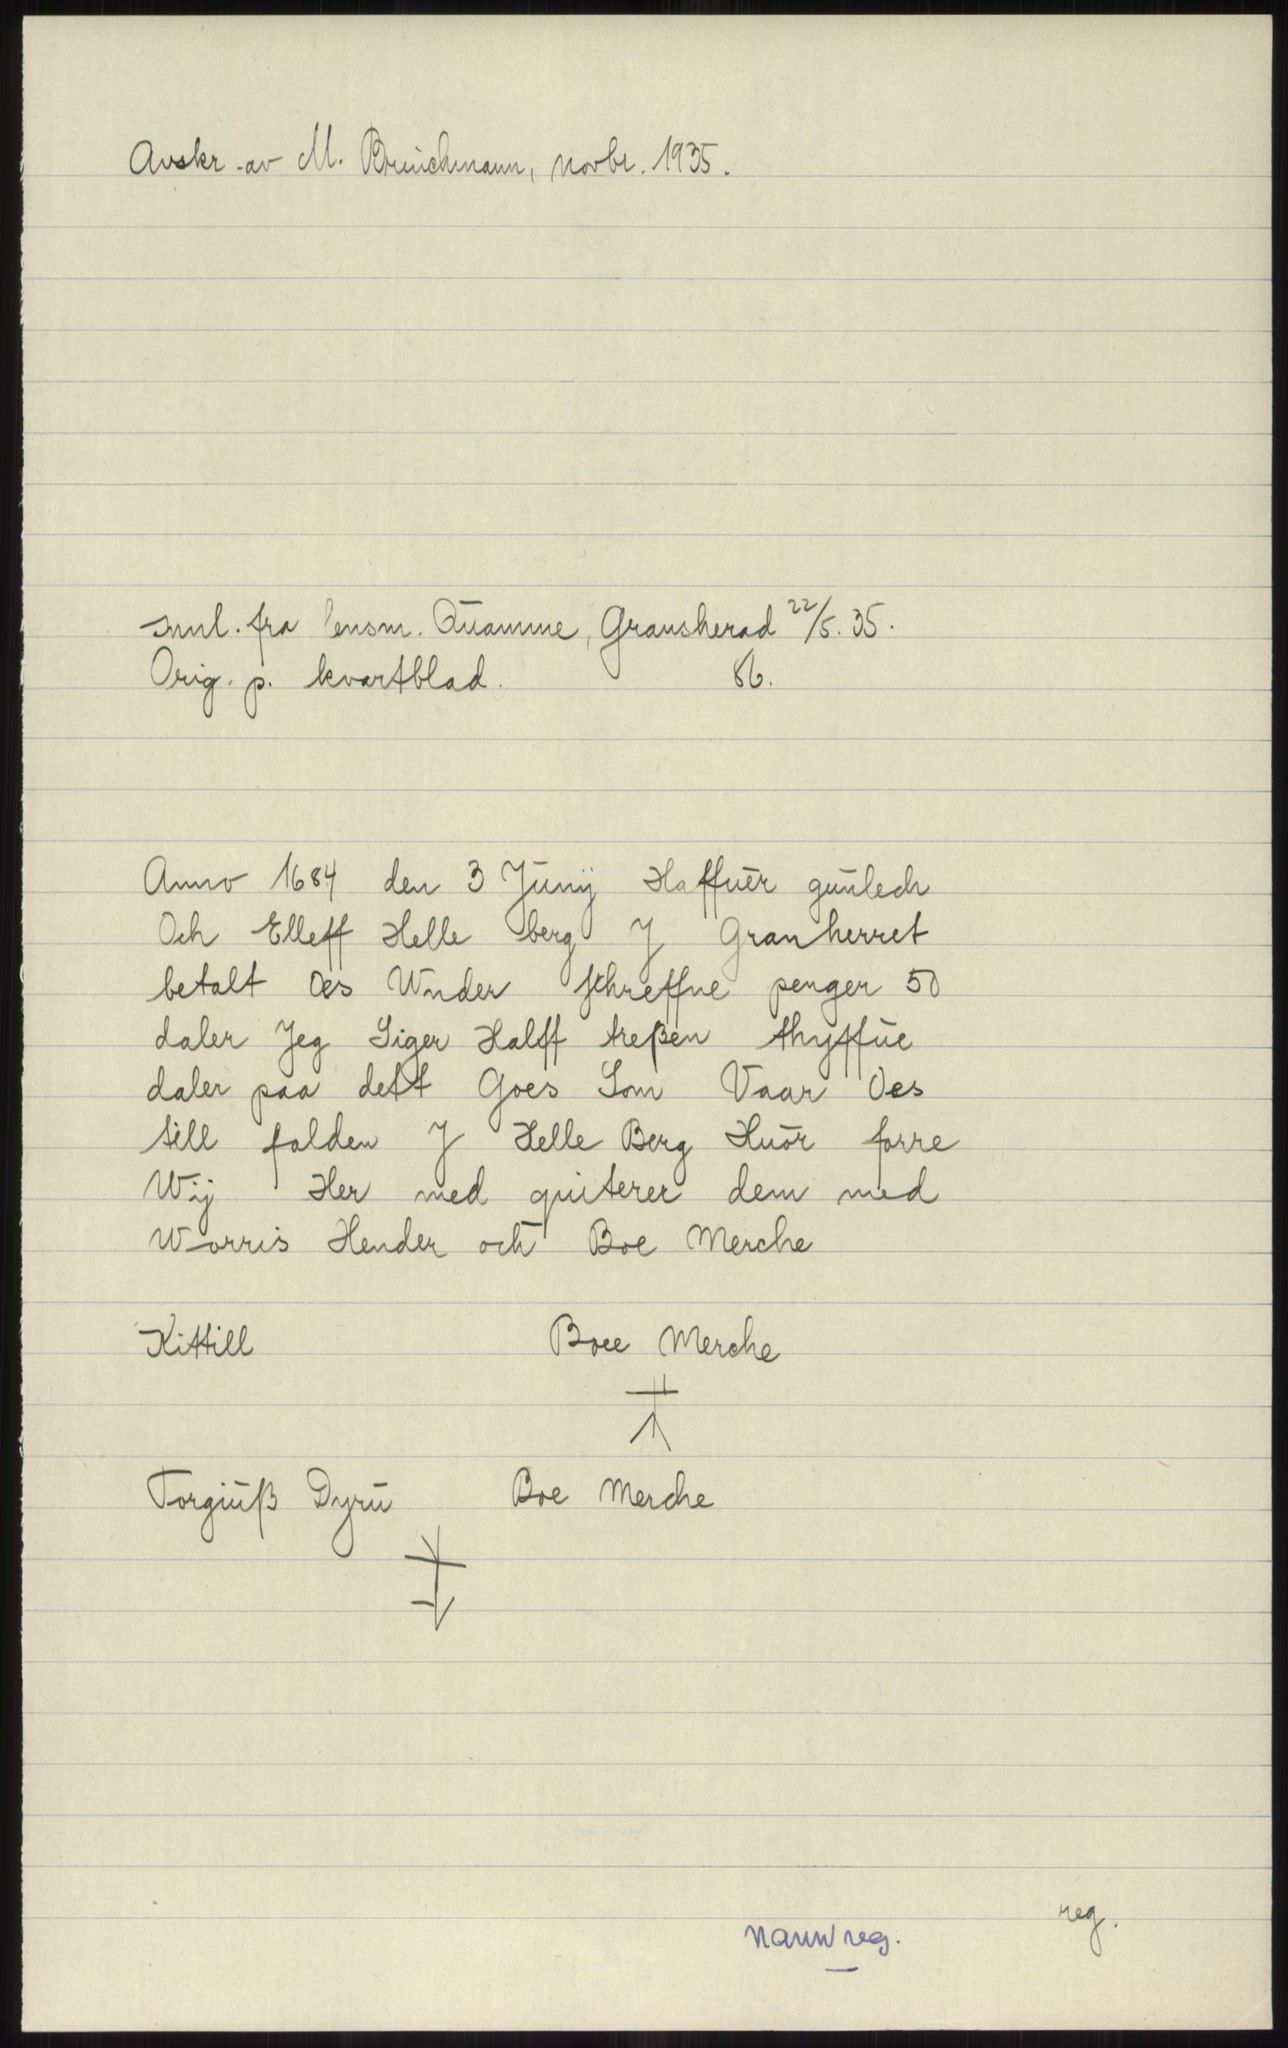 Avskr. av M. Brinchmann, novbr. 1935.
innl. fra lensm. Quamme, Gransherad 22/5. 35.
Orig. p. kvartblad. 86.
Anno 1684 den 3 Junij Haffuer gunlech
Och Elleff Helle berg J Granherret
betalt Oes Wnder schreffne penger 50
daler Jeg Siger Halff treßen thyffue
daler paa dett Goes Som Vaar Oes
till falden J Helle Berg Huor forre
Wij Her med quiterer dem med
Worris Hender och Boe Merche
Kittill Boee Merche
Torgiuß Dyru Boe Merche
reg.
navnreg.